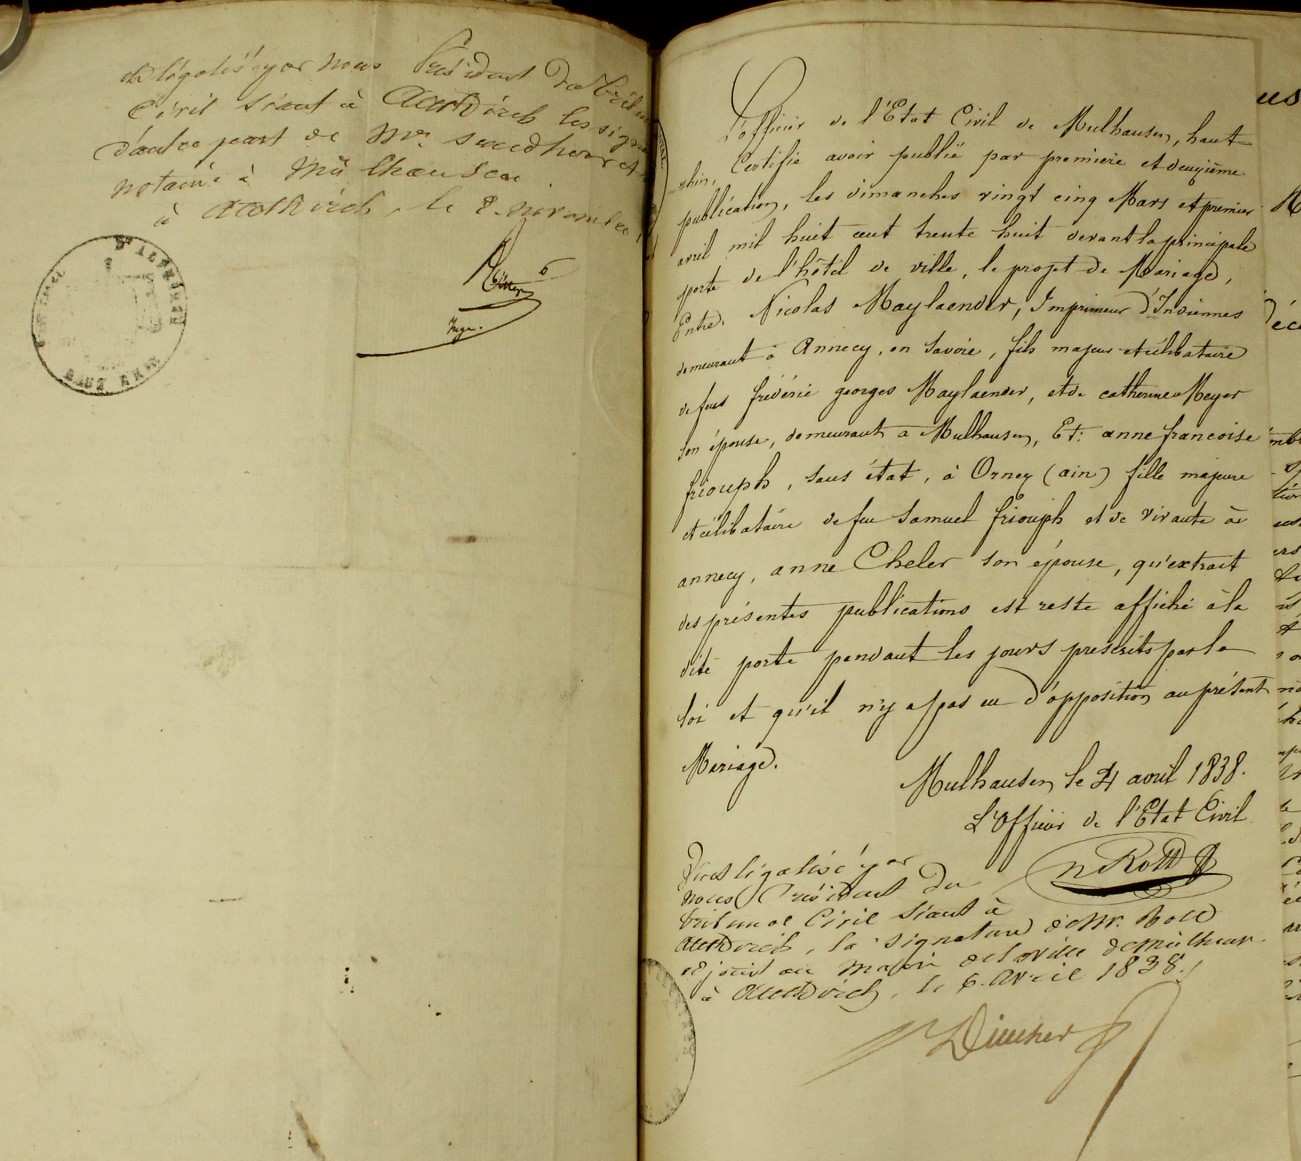 légalisé par nous Président du Trib
Civil séant à Altkirch les sign
d'autre part de Mr.
notaire à Mülhausen
à Altkirch, le 8. novembre
Juge.
HAUT RHIN
L'officier de l'Etat Civil de Mulhausen, haut
rhin, Certifie avoir publié par premiere et deuxième
publication, les dimanches vingt cinq Mars et premier
avril mil huit cent trente huit devant la principale
porte de l'hôtel de ville, le projet de Mariage,
Entre Nicolas Maylaender, Imprimeur d'Indiennes
demeurant à Annecy, en Savoie, fils majeur et célibataire
de feus frédéric georges Maylaender, et de catherine Meyer
son épouse, demeurant à Mulhausen, Et: anne francoise
friouph, sans état, à Ornex (ain) fille majeure
et célibataire de feu Samuel friouph et de vivante à
annecy, anne Cheler son épouse, qu'extrait
des présentes publications est resté affiché à la
dite porte pendant les jours prescrits par la
loi et qu'il n'y a pas eu d'opposition au présent
Mariage.
Mulhausen le 4 avril 1838.
L'Officier de l'Etat Civil
n Rott
légalisé par
nous Président du
tribunal Civil séant à
Altkirch, la signature de Mr. Rott
adjoint au Maire de la ville de Mülhausen
à Altkirch, le 6. avril 1838.